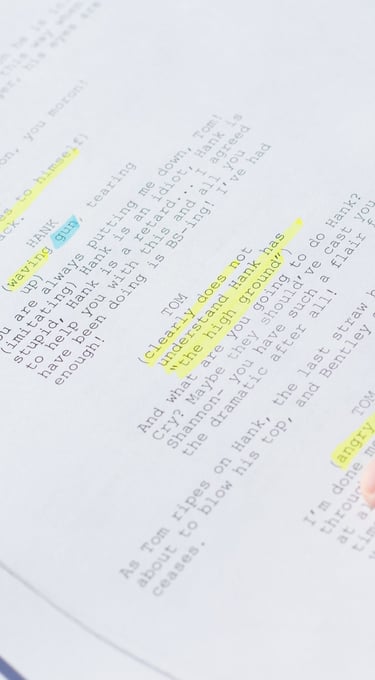 he is in
this way when
his eyes are
on, you moron!
es to himself)
HANK
(waving gun, tearing
up)
You are always putting me down, Tom!
(imitating) Hank is an idiot, Hank is
stupid, Hank is a retard... I agreed
to help you with this and all you
have been doing is BS-ing! I've had
enough!
TOM
(Clearly does not
understand Hank has
"the high ground")
And what are you going to do Hank?
Cry? Maybe they should've cast you
Shannon- you have such a flair f
the dramatic after all!
As Tom ripes on Hank, the last straw
about to blow his top, and Bentley
ceases.
TOM
(angry
I'm done
throug
at a
tim